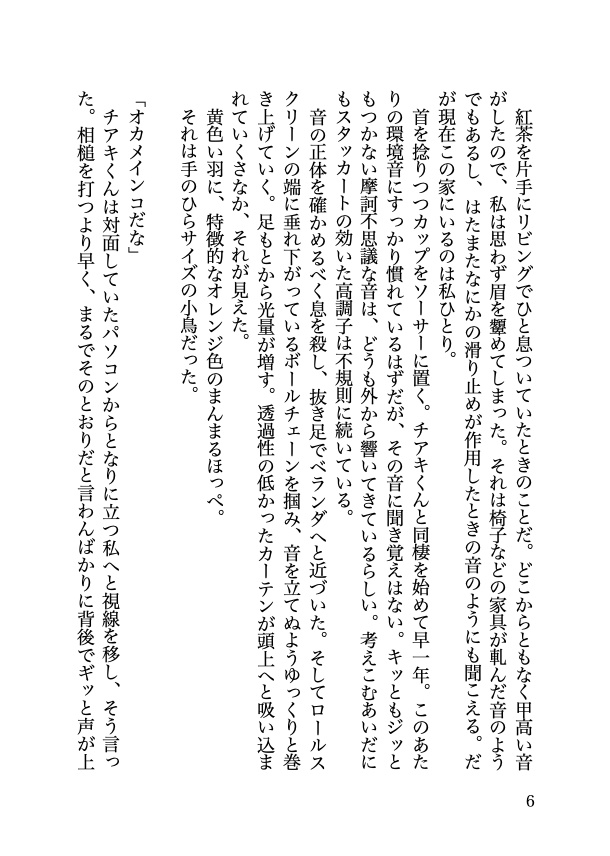 紅茶を片手にリビングでひと息ついていたときのことだ。どこからともなく甲高い音
がしたので、私は思わず眉を顰めてしまった。それは椅子などの家具が軋んだ音のよう
でもあるし、はたまたなにかの滑り止めが作用したときの音のようにも聞こえる。だ
が現在この家にいるのは私ひとり。
　首を捻りつつカップをソーサーに置く。チアキくんと同棲を始めて早一年。このあた
りの環境音にすっかり慣れているはずだが、その音に聞き覚えはない。キッともジッと
もつかない摩訶不思議な音は、どうも外から響いてきているらしい。考えこむあいだに
もスタッカートの効いた高調子は不規則に続いている。
　音の正体を確かめるべく息を殺し、抜き足でベランダへと近づいた。そしてロールス
クリーンの端に垂れ下がっているボールチェーンを掴み、音を立てぬようゆっくりと巻
き上げていく。足もとから光量が増す。透過性の低かったカーテンが頭上へと吸い込ま
れていくさなか、それが見えた。
　黄色い羽に、特徴的なオレンジ色のまんまるほっぺ。
　それは手のひらサイズの小鳥だった。
「オカメインコだな」
　チアキくんは対面していたパソコンからとなりに立つ私へと視線を移し、そう言っ
た。相槌を打つより早く、まるでそのとおりだと言わんばかりに背後でギッと声が上
6